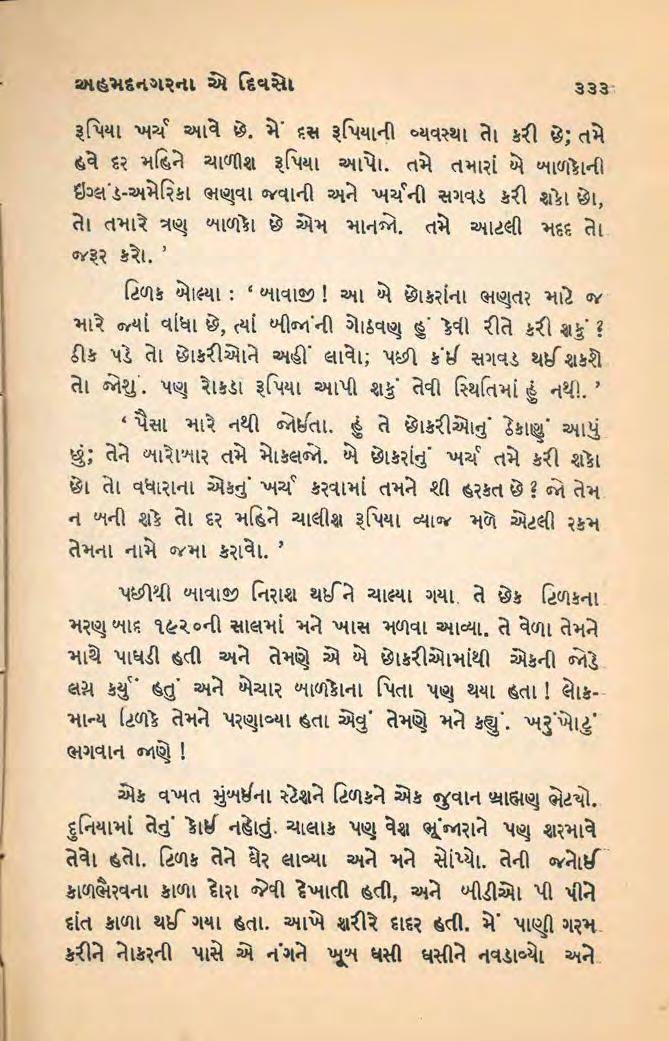 અહમદનગરના એ દિવસો ૩૩૩
રૂપિયા ખર્ચ આવે છે. મેં દસ રૂપિયાની વ્યવસ્થા તો કરી છે; તમે
હવે દર મહિને ચાળીશ રૂપિયા આપો. તમે તમારાં બે બાળકોની
ઇંગ્લંડ-અમેરિકા ભણવા જવાની અને ખર્ચની સગવડ કરી શકો છો,
તો તમારે ત્રણ બાળકો છે એમ માનજો. તમે આટલી મદદ તો
જરૂર કરો. ’
ટિળક બોલ્યા : ‘ બાવાજી ! આ બે છોકરાંના ભણતર માટે જ
મારે જ્યાં વાંધા છે, ત્યાં બીજાંની ગોઠવણ હું કેવી રીતે કરી શકું ?
ઠીક પડે તો છોકરીઓને અહીં લાવો; પછી કંઈ સગવડ થઈ શકશે
તો જોશું. પણ રોકડા રૂપિયા આપી શકું તેવી સ્થિતિમાં હું નથી. ’
‘ પૈસા મારે નથી જોઈતા. હું તે છોકરીઓનું ઠેકાણું આપું
છું; તેને બારોબાર તમે મોકલજો. બે છોકરાંનું ખર્ચ તમે કરી શકો
છો તો વધારાના એકનું ખર્ચ કરવામાં તમને શી હરકત છે ? જો તેમ
ન બની શકે તો દર મહિને ચાલીશ રૂપિયા વ્યાજ મળે એટલી રકમ
તેમના નામે જમા કરાવો. ’
પછીથી બાવાજી નિરાશ થઈને ચાલ્યા ગયા. તે છેક ટિળકના
મરણ બાદ ૧૯૨૦ની સાલમાં મને ખાસ મળવા આવ્યા. તે વેળા તેમને
માથે પાઘડી હતી અને તેમણે એ બે છોકરીઓમાંથી એકની જોડે
લગ્ન કર્યું હતું અને બેચાર બાળકોના પિતા પણ થયા હતા ! લોક-
માન્ય ટિળકે તેમને પરણાવ્યા હતા એવું તેમણે મને કહ્યું. ખરુંખોટું
ભગવાન જાણે !
એક વખત મુંબઈના સ્ટેશને ટિળકને એક જુવાન બ્રાહ્મણ ભેટયો.
દુનિયામાં તેનું કોઈ નહોતું. ચાલાક પણ વેશ ભૂંજારાને પણ શરમાવે
તેવો હતો. ટિળક તેને ઘેર લાવ્યા અને મને સોંપ્યો. તેની જનોઈ
કાળભૈરવના કાળા દોરા જેવી દેખાતી હતી, અને બીડીઓ પી પીને
દાંત કાળા થઈ ગયા હતા. આખે શરીરે દાદર હતી. મેં પાણી ગરમ
કરીને નોકરની પાસે એ નંગને ખૂબ ઘસી ઘસીને નવડાવ્યો અને